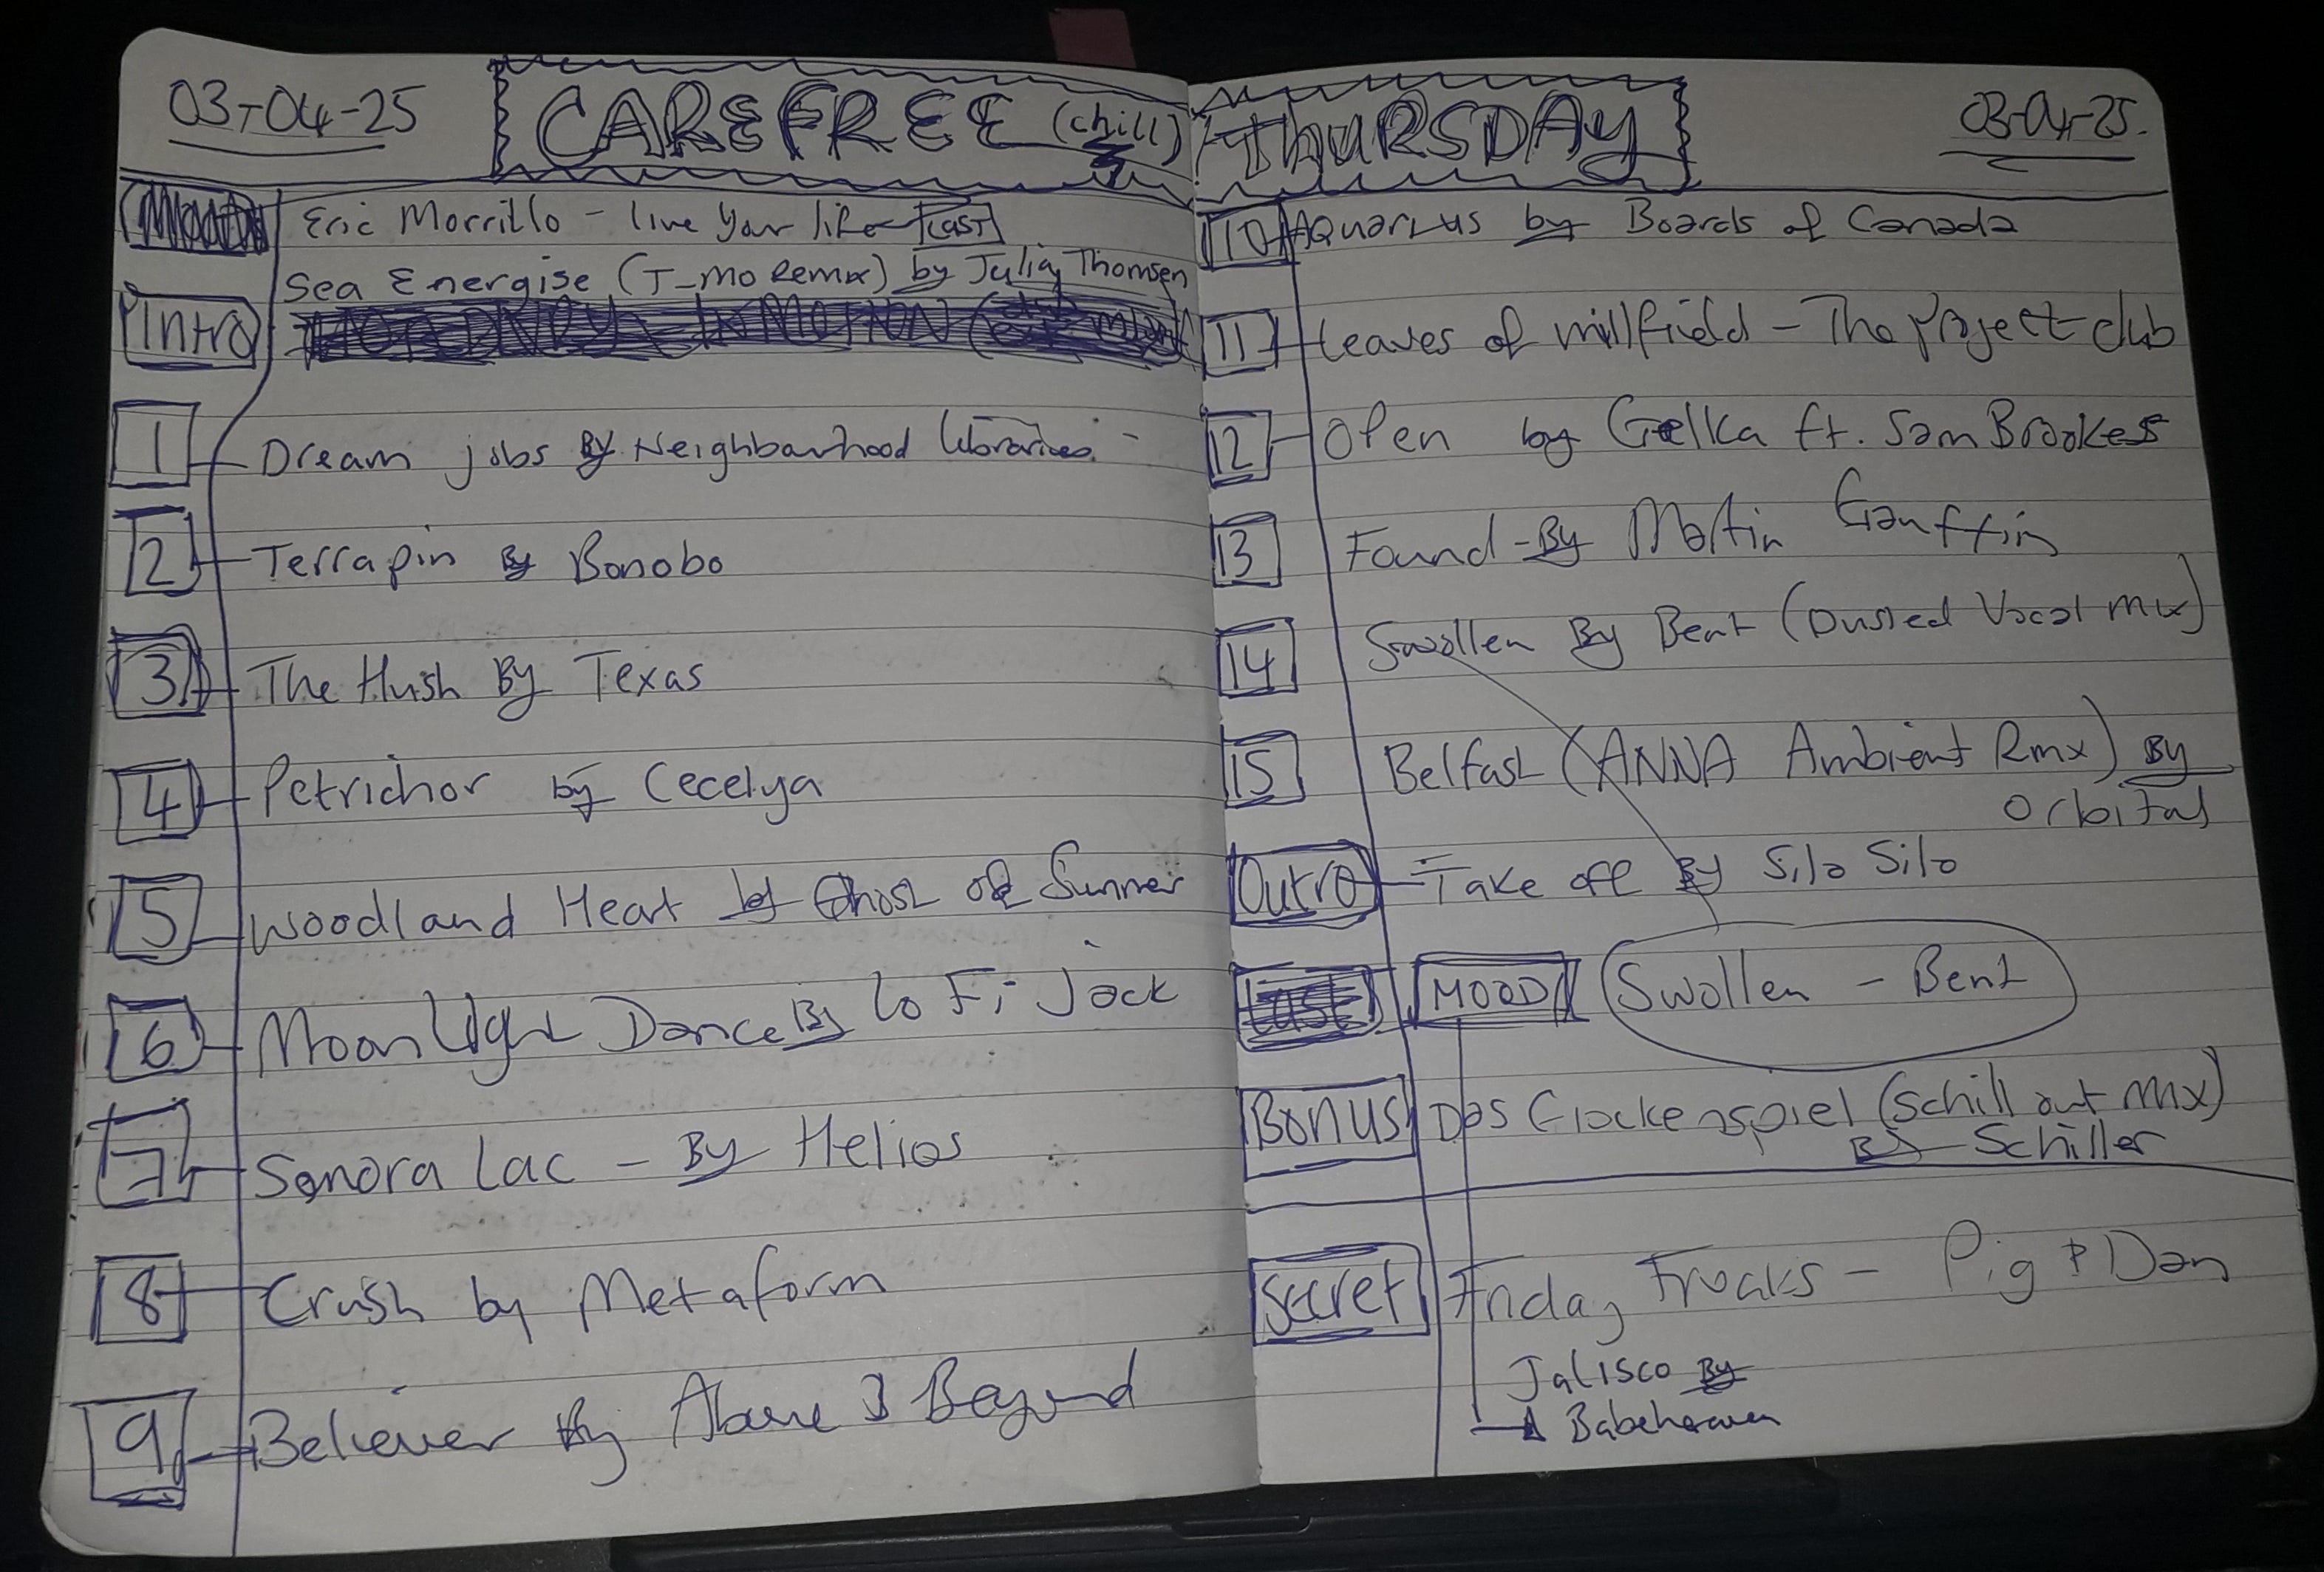 03-04-25 CAREFREE (chill) THURSDAY 03-04-25.
Eric Morrillo - live your life FAST
Sea Energise (T-mo Remix) by Julia Thomsen
Intro
1 Dream jobs By Neighbourhood libraries
2 Terrapin By Bonobo
3 The Hush By Texas
4 Petrichor by Cecelya
5 Woodland Heart by Ghost of Summer
6 Moonlight Dance By Lo Fi Jack
7 Sonora Lac - By Helios
8 Crush by Metaform
9 Believer By Above & Beyond
10 AQuarius by Boards of Canada
11 Leaves of millfield - The Project club
12 Open by Gelka ft. Sam Brookes
13 Found - By Martin Gauffin
14 Swollen By Bent (Dusted Vocal mix)
15 Belfast (ANNA Ambient Rmx) By
Orbital
Outro Take off By Silo Silo
Last MOOD Swollen - Bent
Bonus Das Glockenspiel (Schill out Mix)
By Schiller
Secret Friday Freaks - Pig & Dan
Jalisco By
Babeheaven